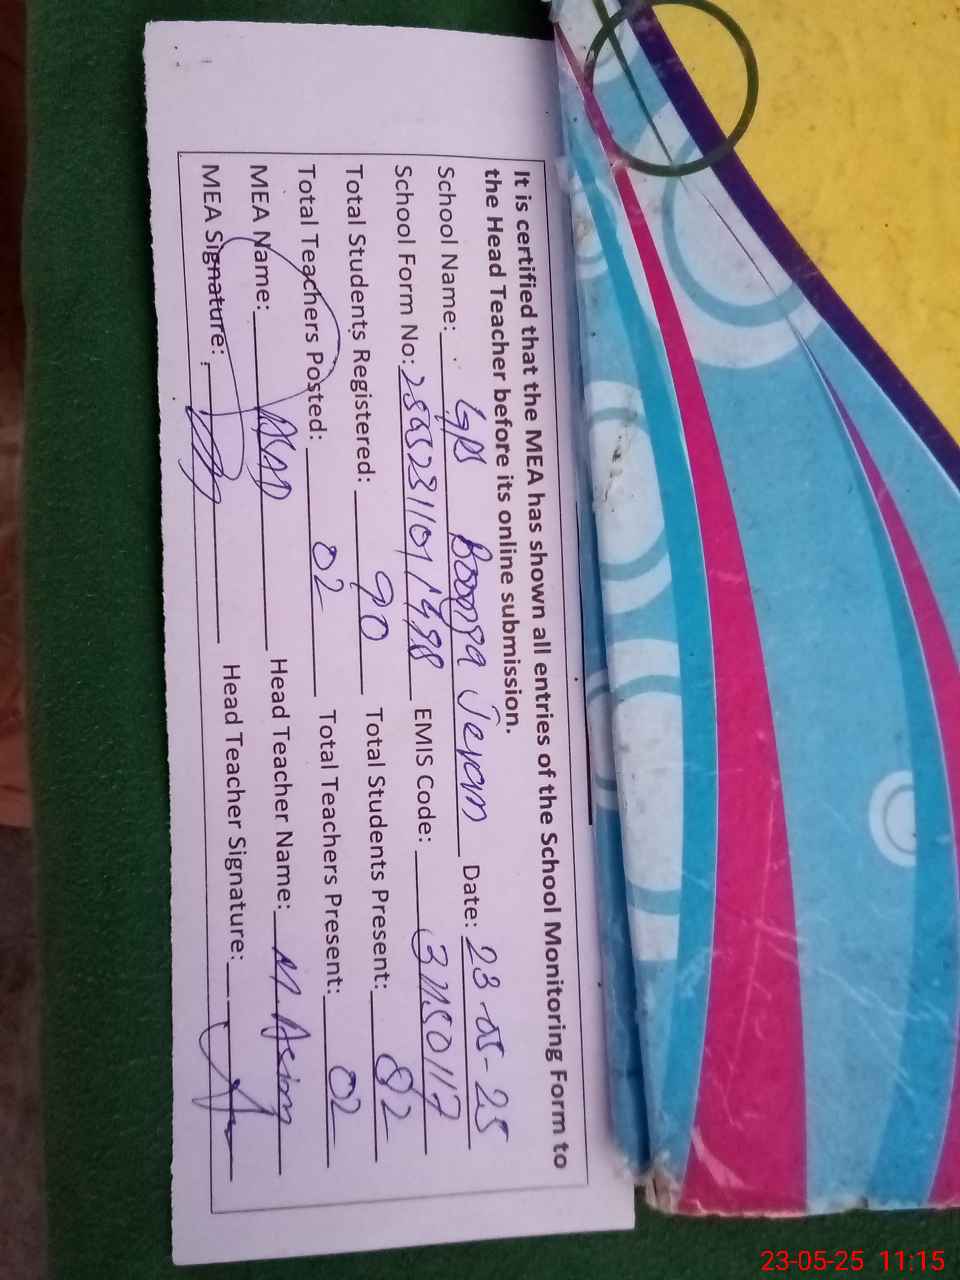 It is certified that the MEA has shown all entries of the School Monitoring Form to
the Head Teacher before its online submission.
School Name: GPS Boonga Jevan Date: 23-05-25
School Form No: EMIS Code:
Total Students Registered: 90 Total Students Present: 82
Total Teachers Posted: 02 Total Teachers Present: 02
MEA Name: ASAD Head Teacher Name: M. Asim
MEA Signature: Head Teacher Signature:
23-05-25 11:15